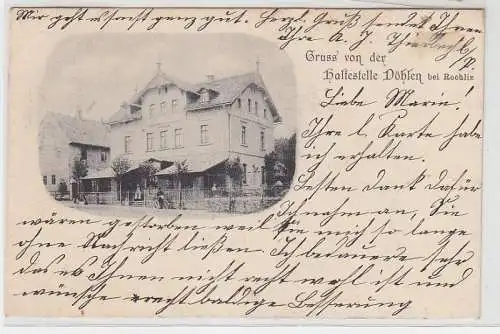 Mir geht es sonst ganz gut. Herzl. Gruß sendet Ihnen
Ihre A. J.
Gruss von der
Haltestelle Döhlen bei Rochlitz
Liebe Marie!
Ihre l. Karte habe
ich erhalten.
Besten Dank dafür
Ich nahm an, Sie
wären gestorben weil Sie mich so lange
ohne Nachricht ließen. Ich bedauere sehr
daß es Ihnen nicht recht wohl ist und
wünsche recht baldige Besserung